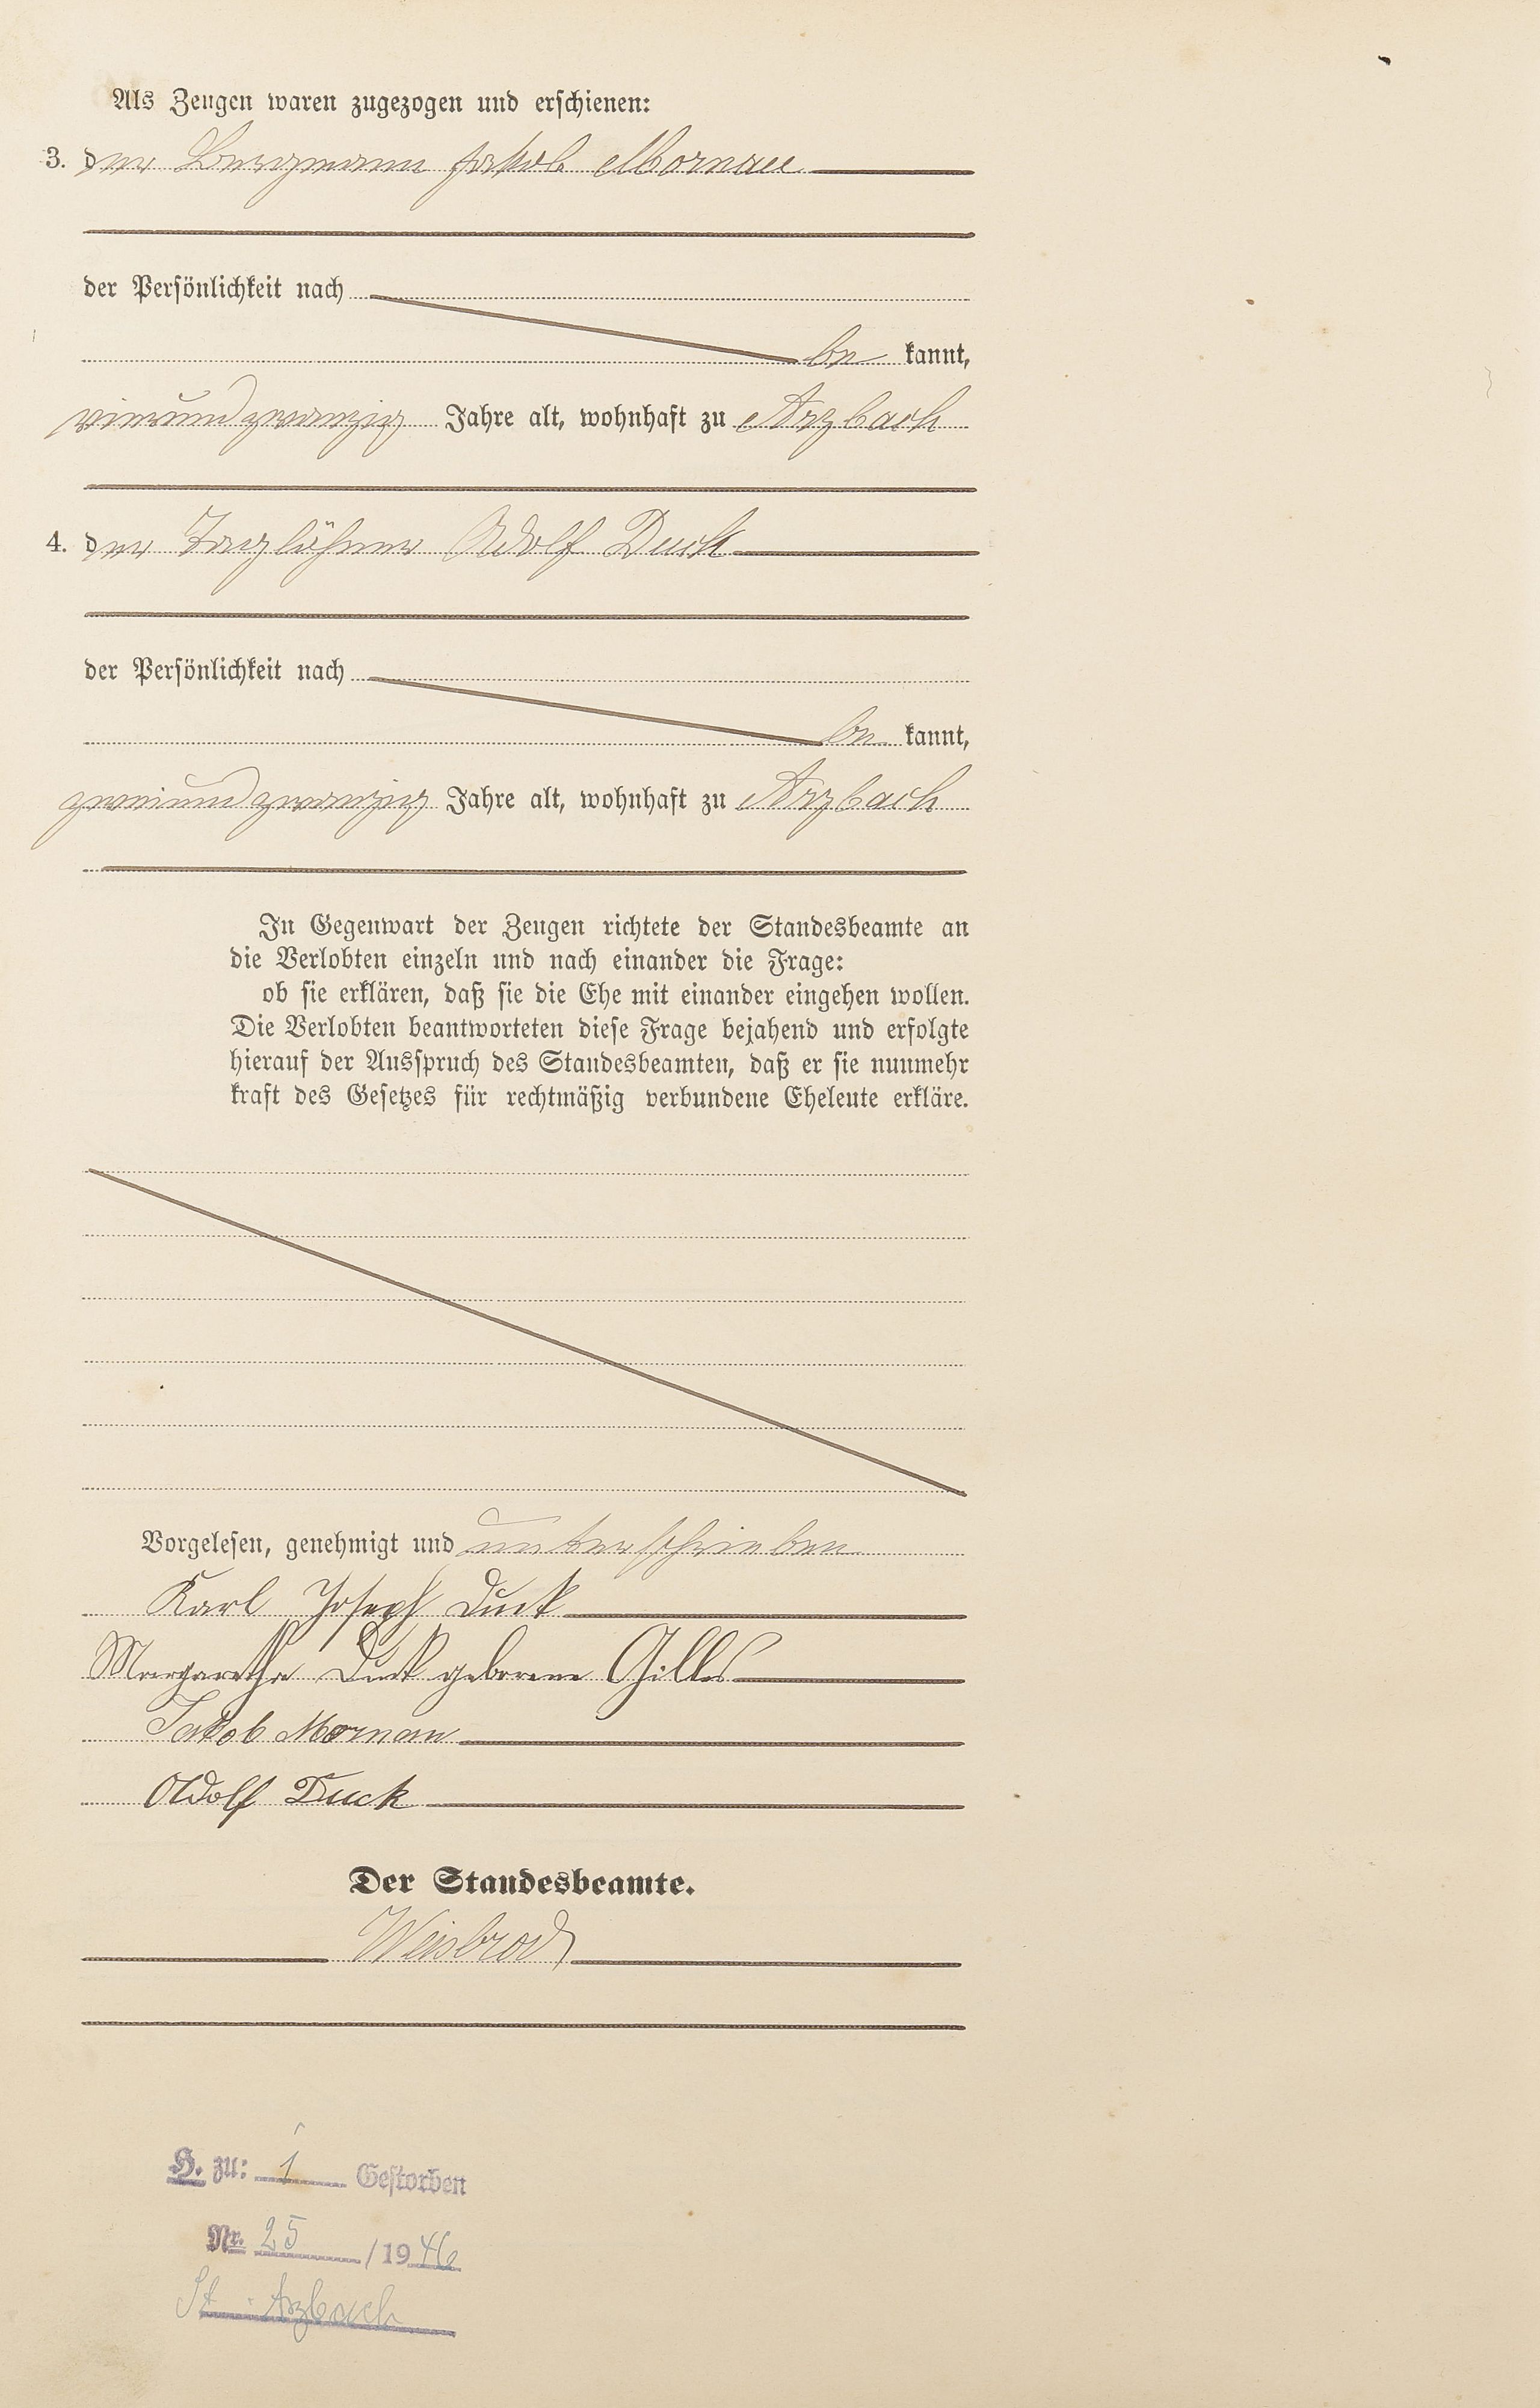 Als Zeugen waren zugezogen und erschienen:
3. der Bergmann Jakob Mornau
der Persönlichkeit nach
be kannt,
vierundzwanzig Jahre alt, wohnhaft zu Arzbach
4. der Taglöhner Adolf Duck
der Persönlichkeit nach
be kannt,
zweiundzwanzig Jahre alt, wohnhaft zu Arzbach
In Gegenwart der Zeugen richtete der Standesbeamte an
die Verlobten einzeln und nach einander die Frage:
ob sie erklären, daß sie die Ehe mit einander eingehen wollen.
Die Verlobten beantworteten diese Frage bejahend und erfolgte
hierauf der Ausspruch des Standesbeamten, daß er sie nunmehr
kraft des Gesetzes für rechtmäßig verbundene Eheleute erkläre.
Vorgelesen, genehmigt und unterschrieben
Karl Joseph Duck
Margaretha Duck geborene Gilles
Jakob Mornau
Adolf Duck
Der Standesbeamte.
Weisbrod
H. zu: 1 Gestorben
Nr. 25 / 1946
St. Arzbach